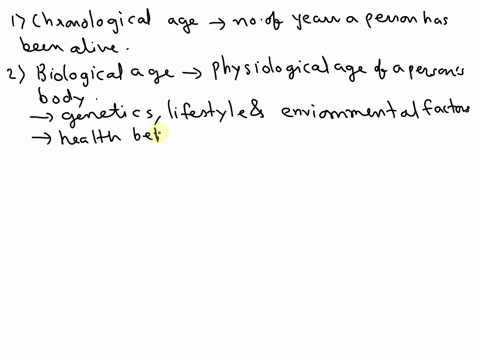 1) Chronological age → no. of years a person has
been alive.
2) Biological age → physiological age of a person's
body.
→ genetics, lifestyle & environmental factors
→ health be